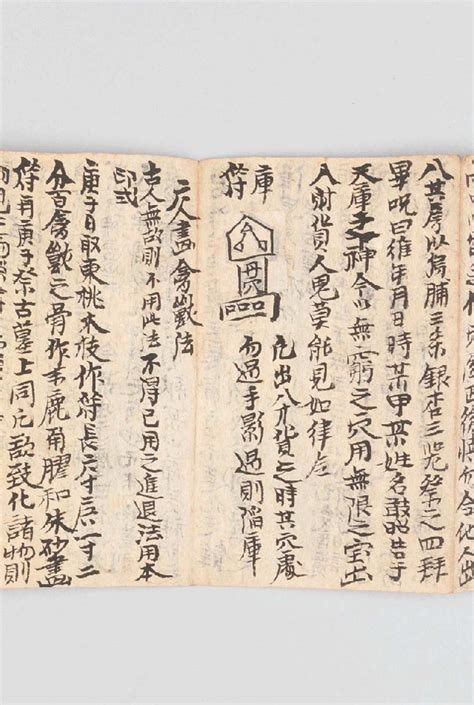 其房以烏脯三条銀店三祭之四拜
畢呪曰維年月日時某甲某姓名敢昭告于
天庫之神令以無窮之穴用無限之宝出
入財貨人鬼莫能見如律令
庫符
凡出八介貨之時其穴處
而過手影過則陷庫
人畫禽獣法
古人無故則不用此法不得已用之進退法用本
印式
庚子日取東桃木枝作符長六寸広一寸二
分百禽獣之骨作末鹿角膠和朱砂畫
符再庚子祭古墓上同凡欲致化諸物則